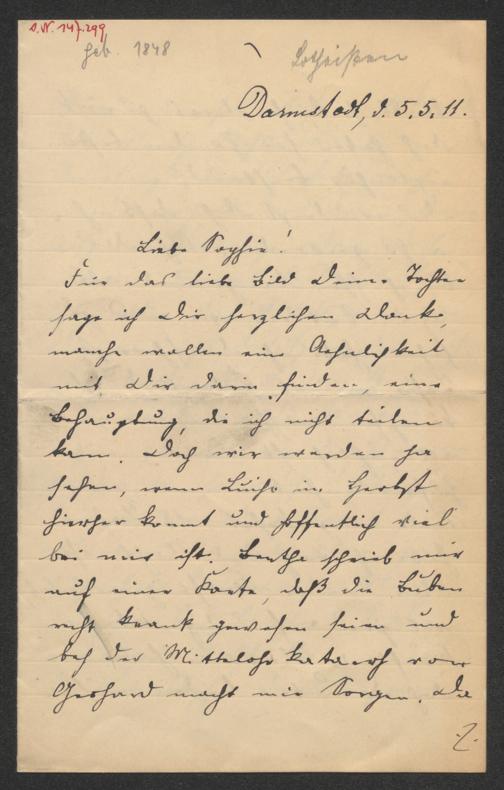 J.N. 147.299
geb. 1848
Lotheißen
Darmstadt, d. 5.5.11.
Liebe Sophie!
Für das liebe Bild Deiner Tochter
sage ich Dir herzlichen Dank,
manche wollen eine Aehnlichkeit
mit Dir darin finden, eine
Behauptung, die ich nicht teilen
kann. Doch wir werden ja
sehen, wenn Luise im Herbst
hierher kommt und hoffentlich viel
bei mir ist. Bertha schrieb mir
auf einer Karte, daß die Buben
recht krank gewesen seien und
bes der Mittelohrkatarrh von
Gerhard macht mir Sorgen. Da
./.